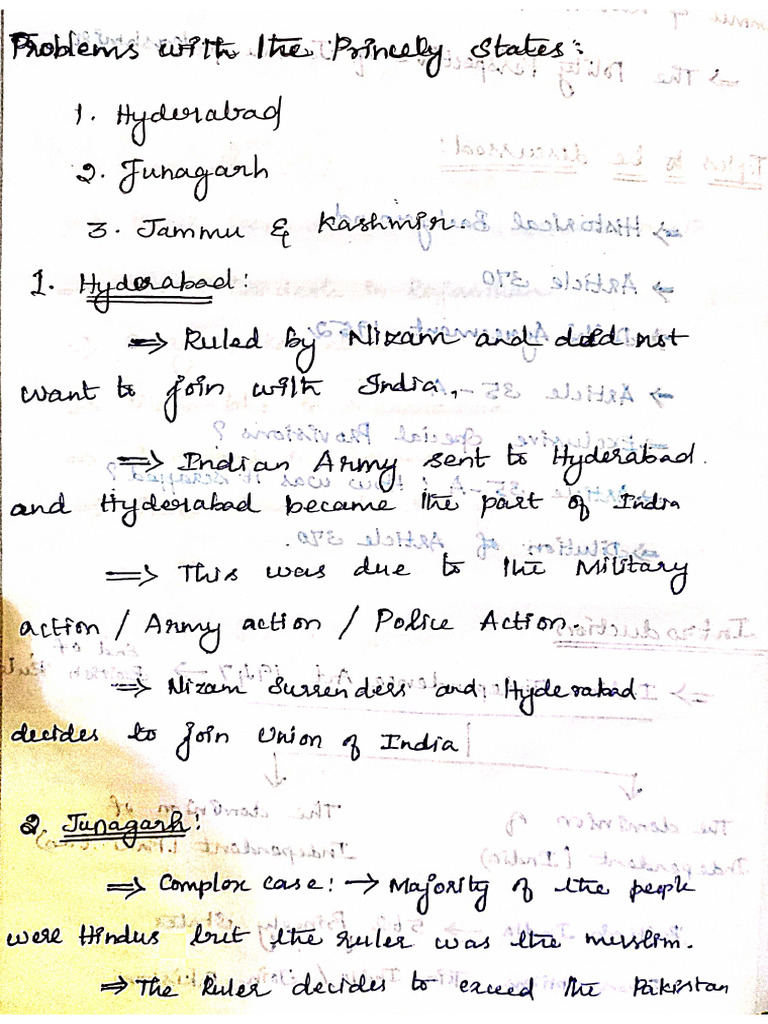 Problems with the Princely States:
1. Hyderabad
2. Junagarh
3. Jammu & Kashmir.
1. Hyderabad:
⇒ Ruled by Nizam and did not
want to join with India,
⇒ Indian Army sent to Hyderabad.
and Hyderabad became the part of India
⇒ This was due to the Military
action / Army action / Police Action.
⇒ Nizam Surrenders and Hyderabad
decides to join Union of India
2. Junagarh:
⇒ Complex case: → Majority of the people
were Hindus but the ruler was the muslim.
⇒ The Ruler decides to exceed the Pakistan